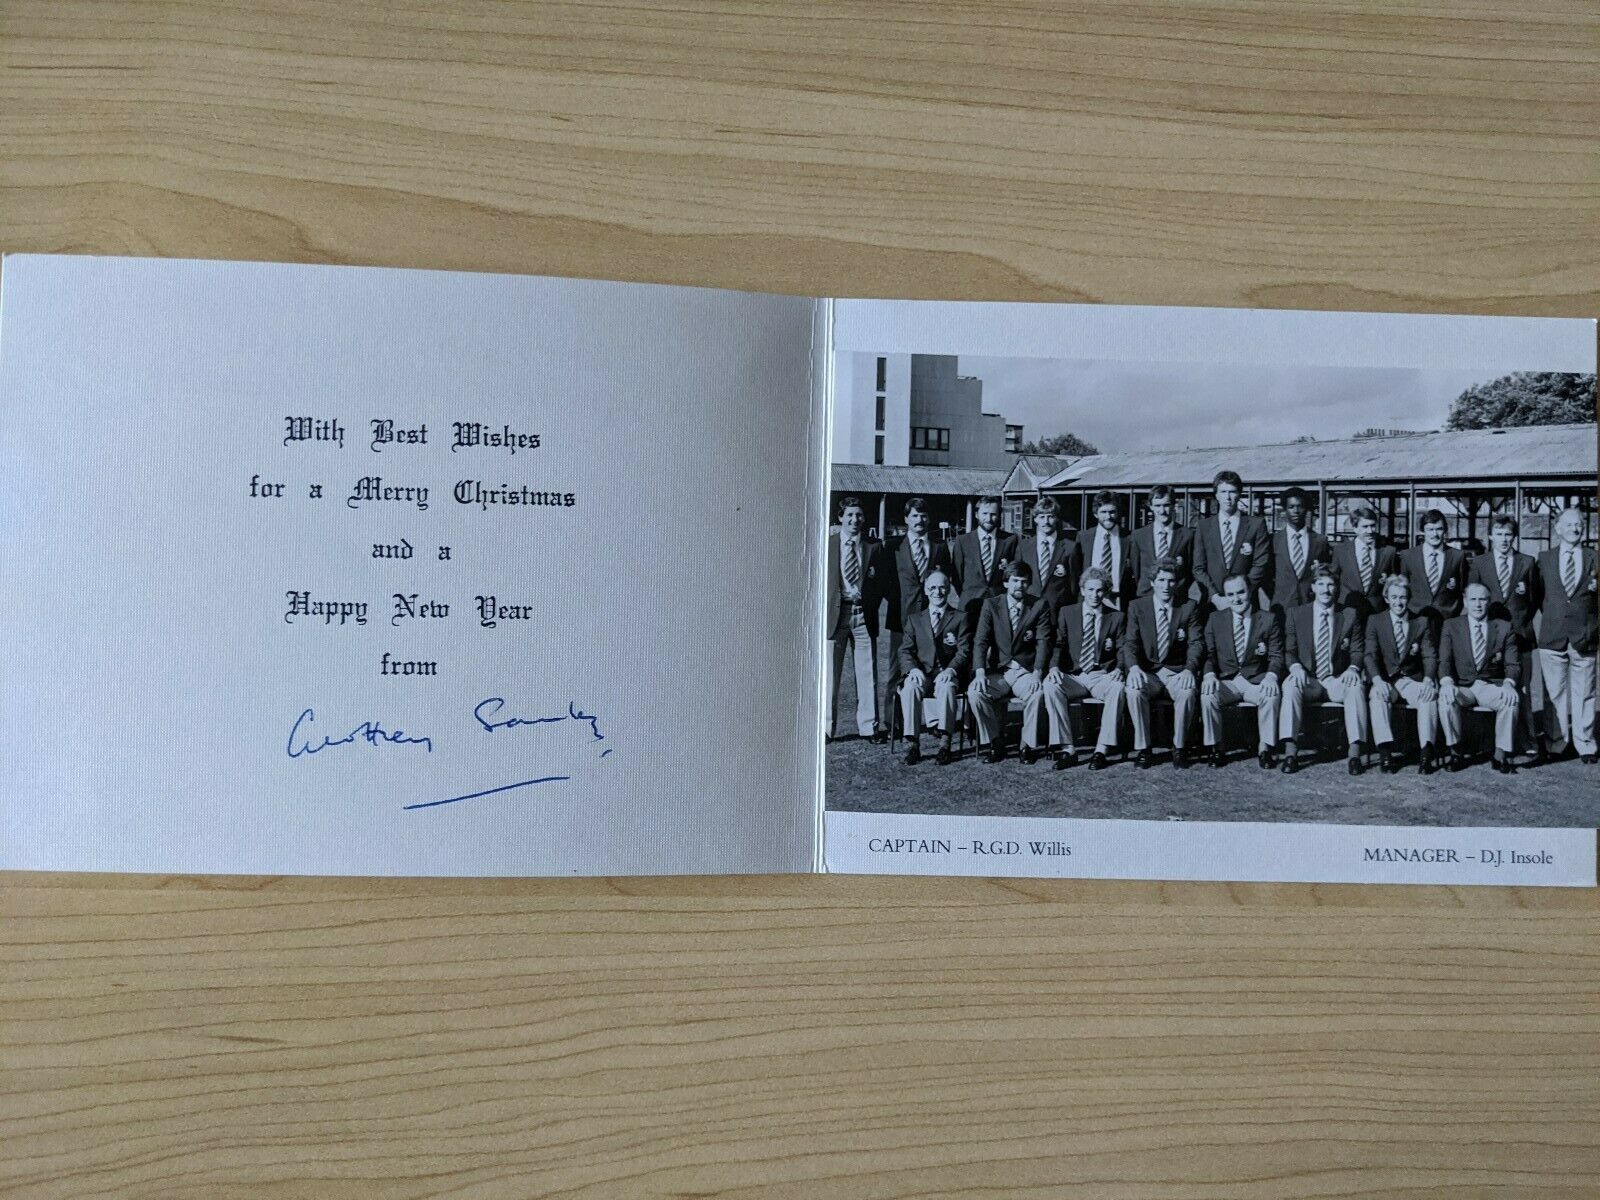 With Best Wishes
for a Merry Christmas
and a
Happy New Year
from
Geoffrey Saulez
CAPTAIN – R.G.D. Willis
MANAGER – D.J. Insole